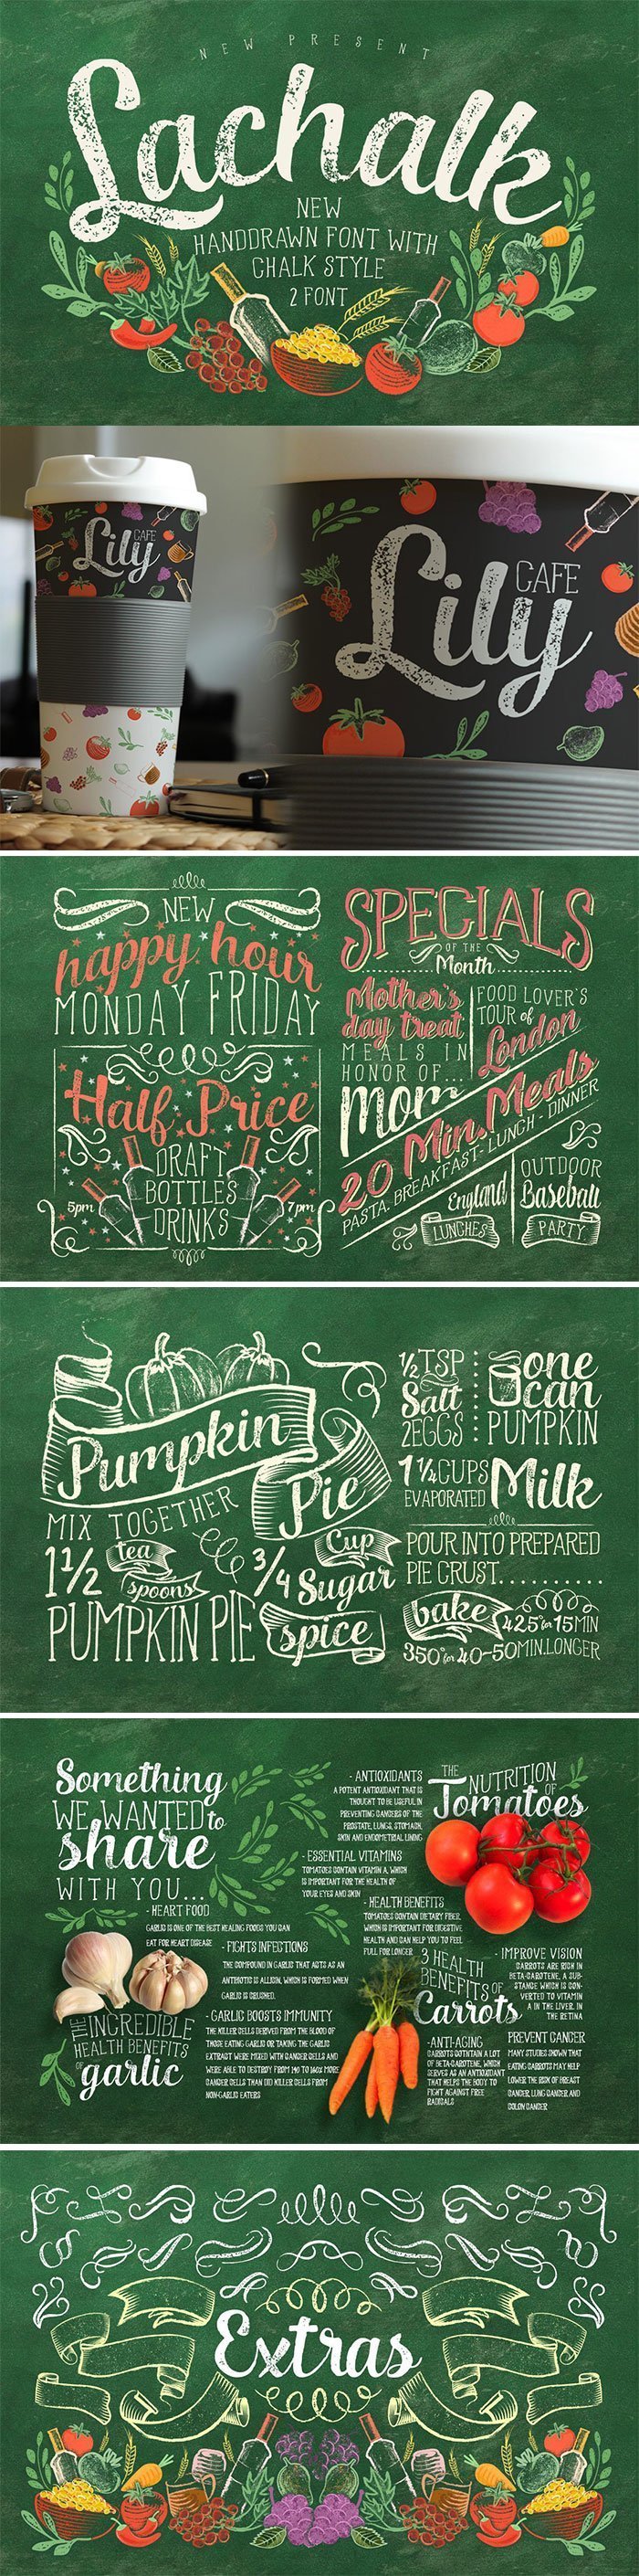 NEW PRESENT
Lachalk
NEW
HANDDRAWN FONT WITH
CHALK STYLE
2 FONT
Lily
CAFE
Lily
CAFE
NEW
happy hour
MONDAY FRIDAY
Half Price
DRAFT
BOTTLES
DRINKS
5pm
7pm
SPECIALS
OF THE
Month
Mother's
day treat
MEALS IN
HONOR OF...
Mom
FOOD LOVER'S
TOUR of
London
20 Min.Meals
PASTA. BREAKFAST- LUNCH - DINNER
England
LUNCHES
OUTDOOR
Baseball
PARTY
Pumpkin
Pie
MIX TOGETHER
1 1/2 tea
spoons
PUMPKIN PIE
3/4 Cup
Sugar
spice
1/2 TSP
Salt
2EGGS
one
can
PUMPKIN
1 1/4 CUPS
EVAPORATED
Milk
POUR INTO PREPARED
PIE CRUST............
bake 425° for 15MIN
350° for 40-50MIN.LONGER
Something
WE WANTED to
share
WITH YOU...
- HEART FOOD
GARLIC IS ONE OF THE BEST HEALING FOODS YOU CAN
EAT FOR HEART DISEASE
- FIGHTS INFECTIONS
THE COMPOUND IN GARLIC THAT ACTS AS AN
ANTIBIOTIC IS ALLICIN, WHICH IS FORMED WHEN
GARLIC IS CRUSHED.
- GARLIC BOOSTS IMMUNITY
THE KILLER CELLS DERIVED FROM THE BLOOD OF
THOSE EATING GARLIC OR TAKING THE GARLIC
EXTRACT WERE MIXED WITH CANCER CELLS AND
WERE ABLE TO DESTROY FROM 140 TO 160% MORE
CANCER CELLS THAN DID KILLER CELLS FROM
NON-GARLIC EATERS
THE INCREDIBLE
HEALTH BENEFITS
OF garlic
- ANTIOXIDANTS
A POTENT ANTIOXIDANT THAT IS
THOUGHT TO BE USEFUL IN
PREVENTING CANCERS OF THE
PROSTATE, LUNGS, STOMACH,
SKIN AND ENDOMETRIAL LINING
- ESSENTIAL VITAMINS
TOMATOES CONTAIN VITAMIN A, WHICH
IS IMPORTANT FOR THE HEALTH OF
YOUR EYES AND SKIN
- HEALTH BENEFITS
TOMATOES CONTAIN DIETARY FIBER,
WHICH IS IMPORTANT FOR DIGESTIVE
HEALTH AND CAN HELP YOU TO FEEL
FULL FOR LONGER
THE NUTRITION OF
Tomatoes
3 HEALTH
BENEFITS OF
Carrots
- IMPROVE VISION
CARROTS ARE RICH IN
BETA-CAROTENE, A SUB-
STANCE WHICH IS CON-
VERTED TO VITAMIN
A IN THE LIVER. IN
THE RETINA
-ANTI-AGING
CARROTS CONTAIN A LOT
OF BETA-CAROTENE, WHICH
SERVES AS AN ANTIOXIDANT
THAT HELPS THE BODY TO
FIGHT AGAINST FREE
RADICALS
PREVENT CANCER
MANY STUDIES SHOWN THAT
EATING CARROTS MAY HELP
LOWER THE RISK OF BREAST
CANCER LUNG CANCER AND
COLON CANCER
Extras